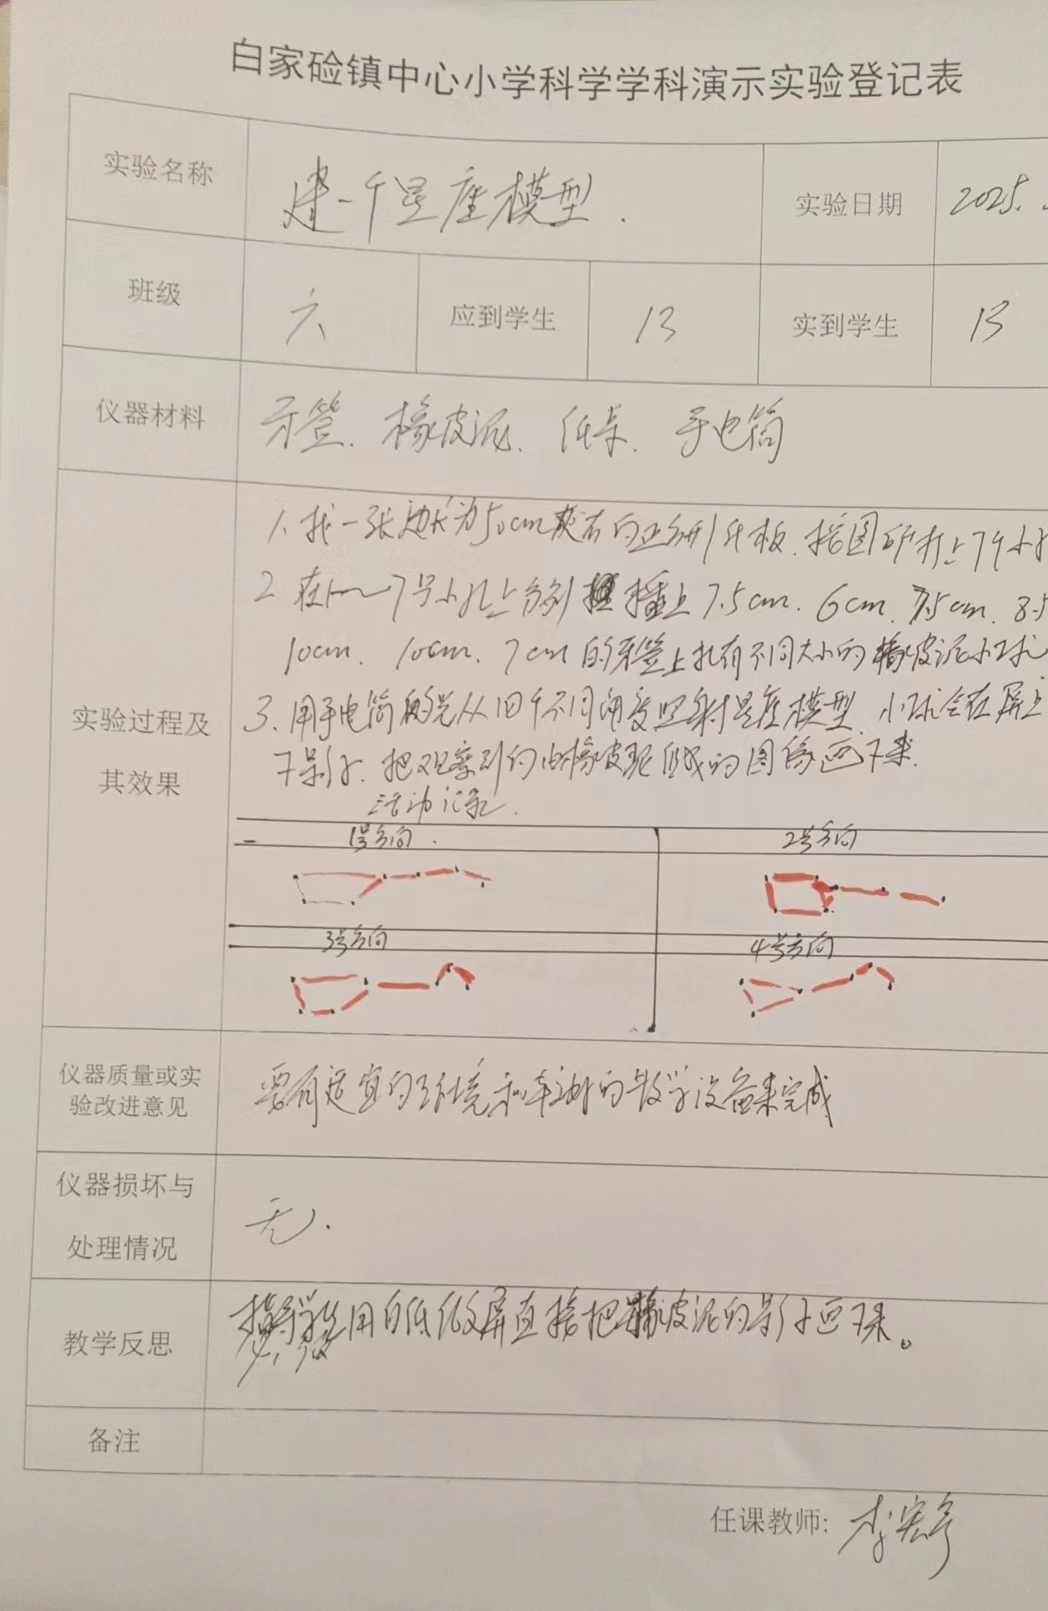 白家硷镇中心小学科学学科演示实验登记表
实验名称 建一个星座模型. 实验日期 2025.
班级 六 应到学生 13 实到学生 13
仪器材料 牙签、橡皮泥、纸卡、手电筒
实验过程及
其效果
1、找一张边长为50cm左右的正方形纸板、按图所打上7个小
2 在1~7号小孔上分别插上7.5cm、6cm、7.5cm、8.5
10cm、10cm、7cm的牙签上扎有不同大小的橡皮泥小球
3、用手电筒的光从四个不同角度照射星座模型 小球会在屏上
下影子、把观察到的由橡皮泥组成的图像画下来.
活动记录.
1号方向. 2号方向
3号方向 4号方向
仪器质量或实
验改进意见
要有适宜的环境和的教学设备来完成
仪器损坏与
处理情况
无.
教学反思 指导学生用白纸代屏直接把橡皮泥的影子画下来。
备注
任课教师: 李宏